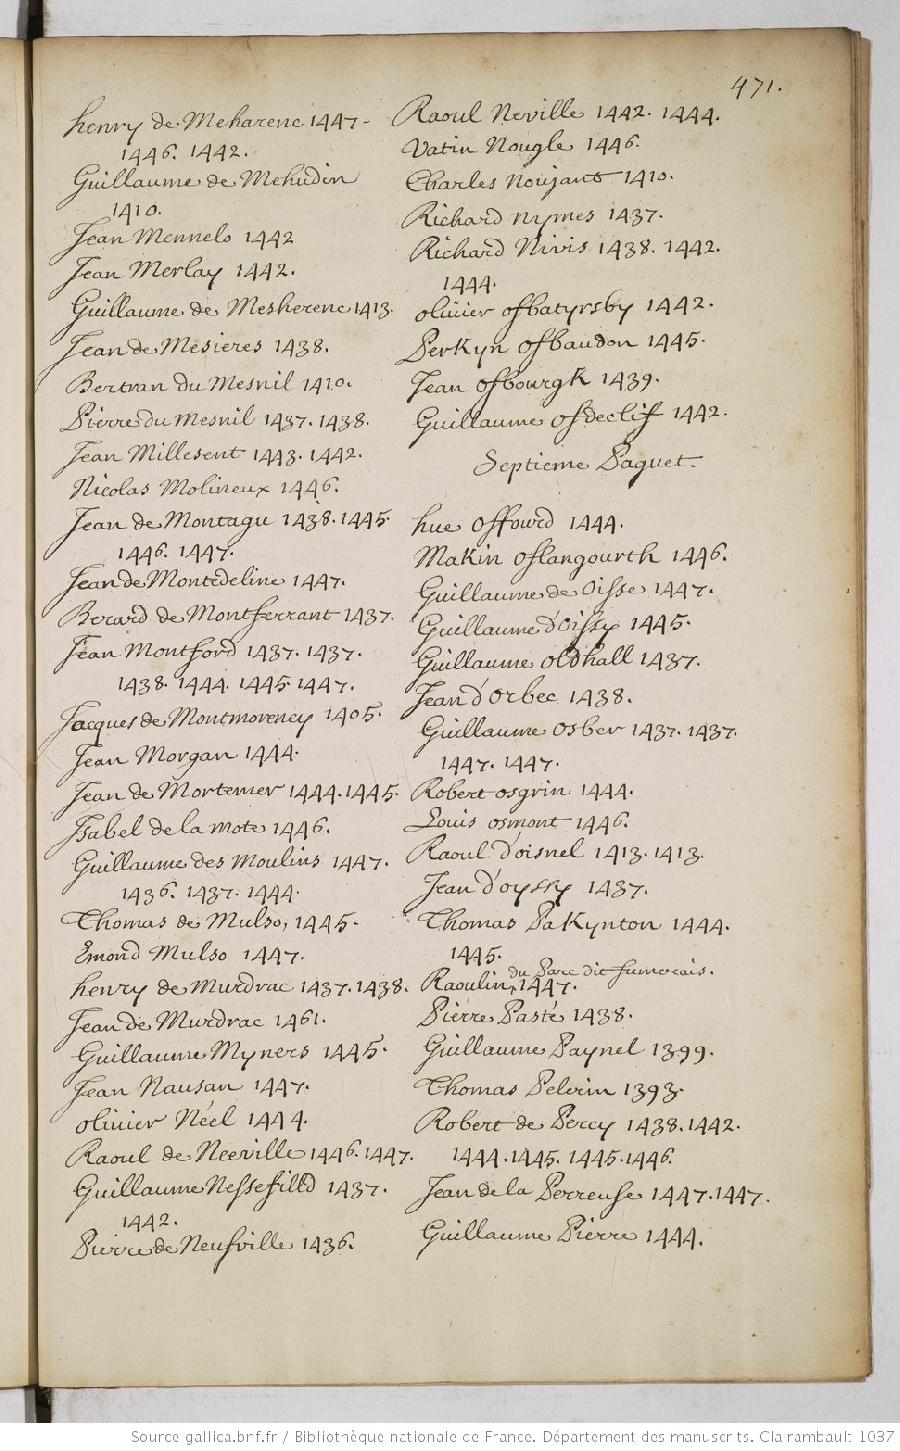 471.
henry de Meharenc 1447-
1446. 1442.
Guillaume de Mehudin
1410.
Jean Mennels 1442
Jean Merlay 1442.
Guillaume de Mesherenc 1413.
Jean de Mesieres 1438.
Bertran du Mesnil 1410.
Pierre du Mesnil 1437. 1438.
Jean Millesent 1443. 1442.
Nicolas Molineux 1446.
Jean de Montagu 1438. 1445.
1446. 1447.
Jean de Montdeline 1447.
Berard de Montferrant 1437.
Jean Montford 1437. 1437.
1438. 1444. 1445. 1447.
Jacques de Montmorency 1405.
Jean Morgan 1444.
Jean de Mortemer 1444. 1445.
Isabel de la mote 1446.
Guillaume des Moulins 1447.
1436. 1437. 1444.
Thomas de Mulso, 1445.
Emond Mulso 1447.
henry de Murdrac 1437. 1438.
Jean de Murdrac 1461.
Guillaume Myners 1445.
Jean Nausan 1447.
olivier Néel 1444.
Raoul de Neeville 1446. 1447.
Guillaume Nessefilld 1437.
1442.
Pierre de Neufville 1436.
Raoul Neville 1442. 1444.
Vatin Nougle 1446.
Charles Noujant 1410.
Richard nymes 1437.
Richard Nivis 1438. 1442.
1444.
olivier ofbatyrsby 1442.
Perkyn ofbaudon 1445.
Jean ofbourgk 1439.
Guillaume ofdeclif 1442.
Septieme Paquet.
hue offourd 1444.
Makin oflangourth 1446.
Guillaume de Oisse 1447.
Guillaume d'oissy 1445.
Guillaume oldhall 1437.
Jean d'Orbec 1438.
Guillaume Osber 1437. 1437.
1447. 1447.
Robert osgrin 1444.
Louis osmont 1446.
Raoul d'oisnel 1413. 1413.
Jean d'oyssy 1437.
Thomas Pakynton 1444.
1445.
du Parc dit fumecais.
Raoulin 1447.
Pierre Pasté 1438.
Guillaume Paynel 1399.
Thomas Pelvin 1393.
Robert de Percy 1438. 1442.
1444. 1445. 1445. 1446.
Jean de la Perreuse 1447. 1447.
Guillaume Pierre 1444.
Source gallica.bnf.fr / Bibliothèque nationale de France. Département des manuscrits. Clairambault 1037